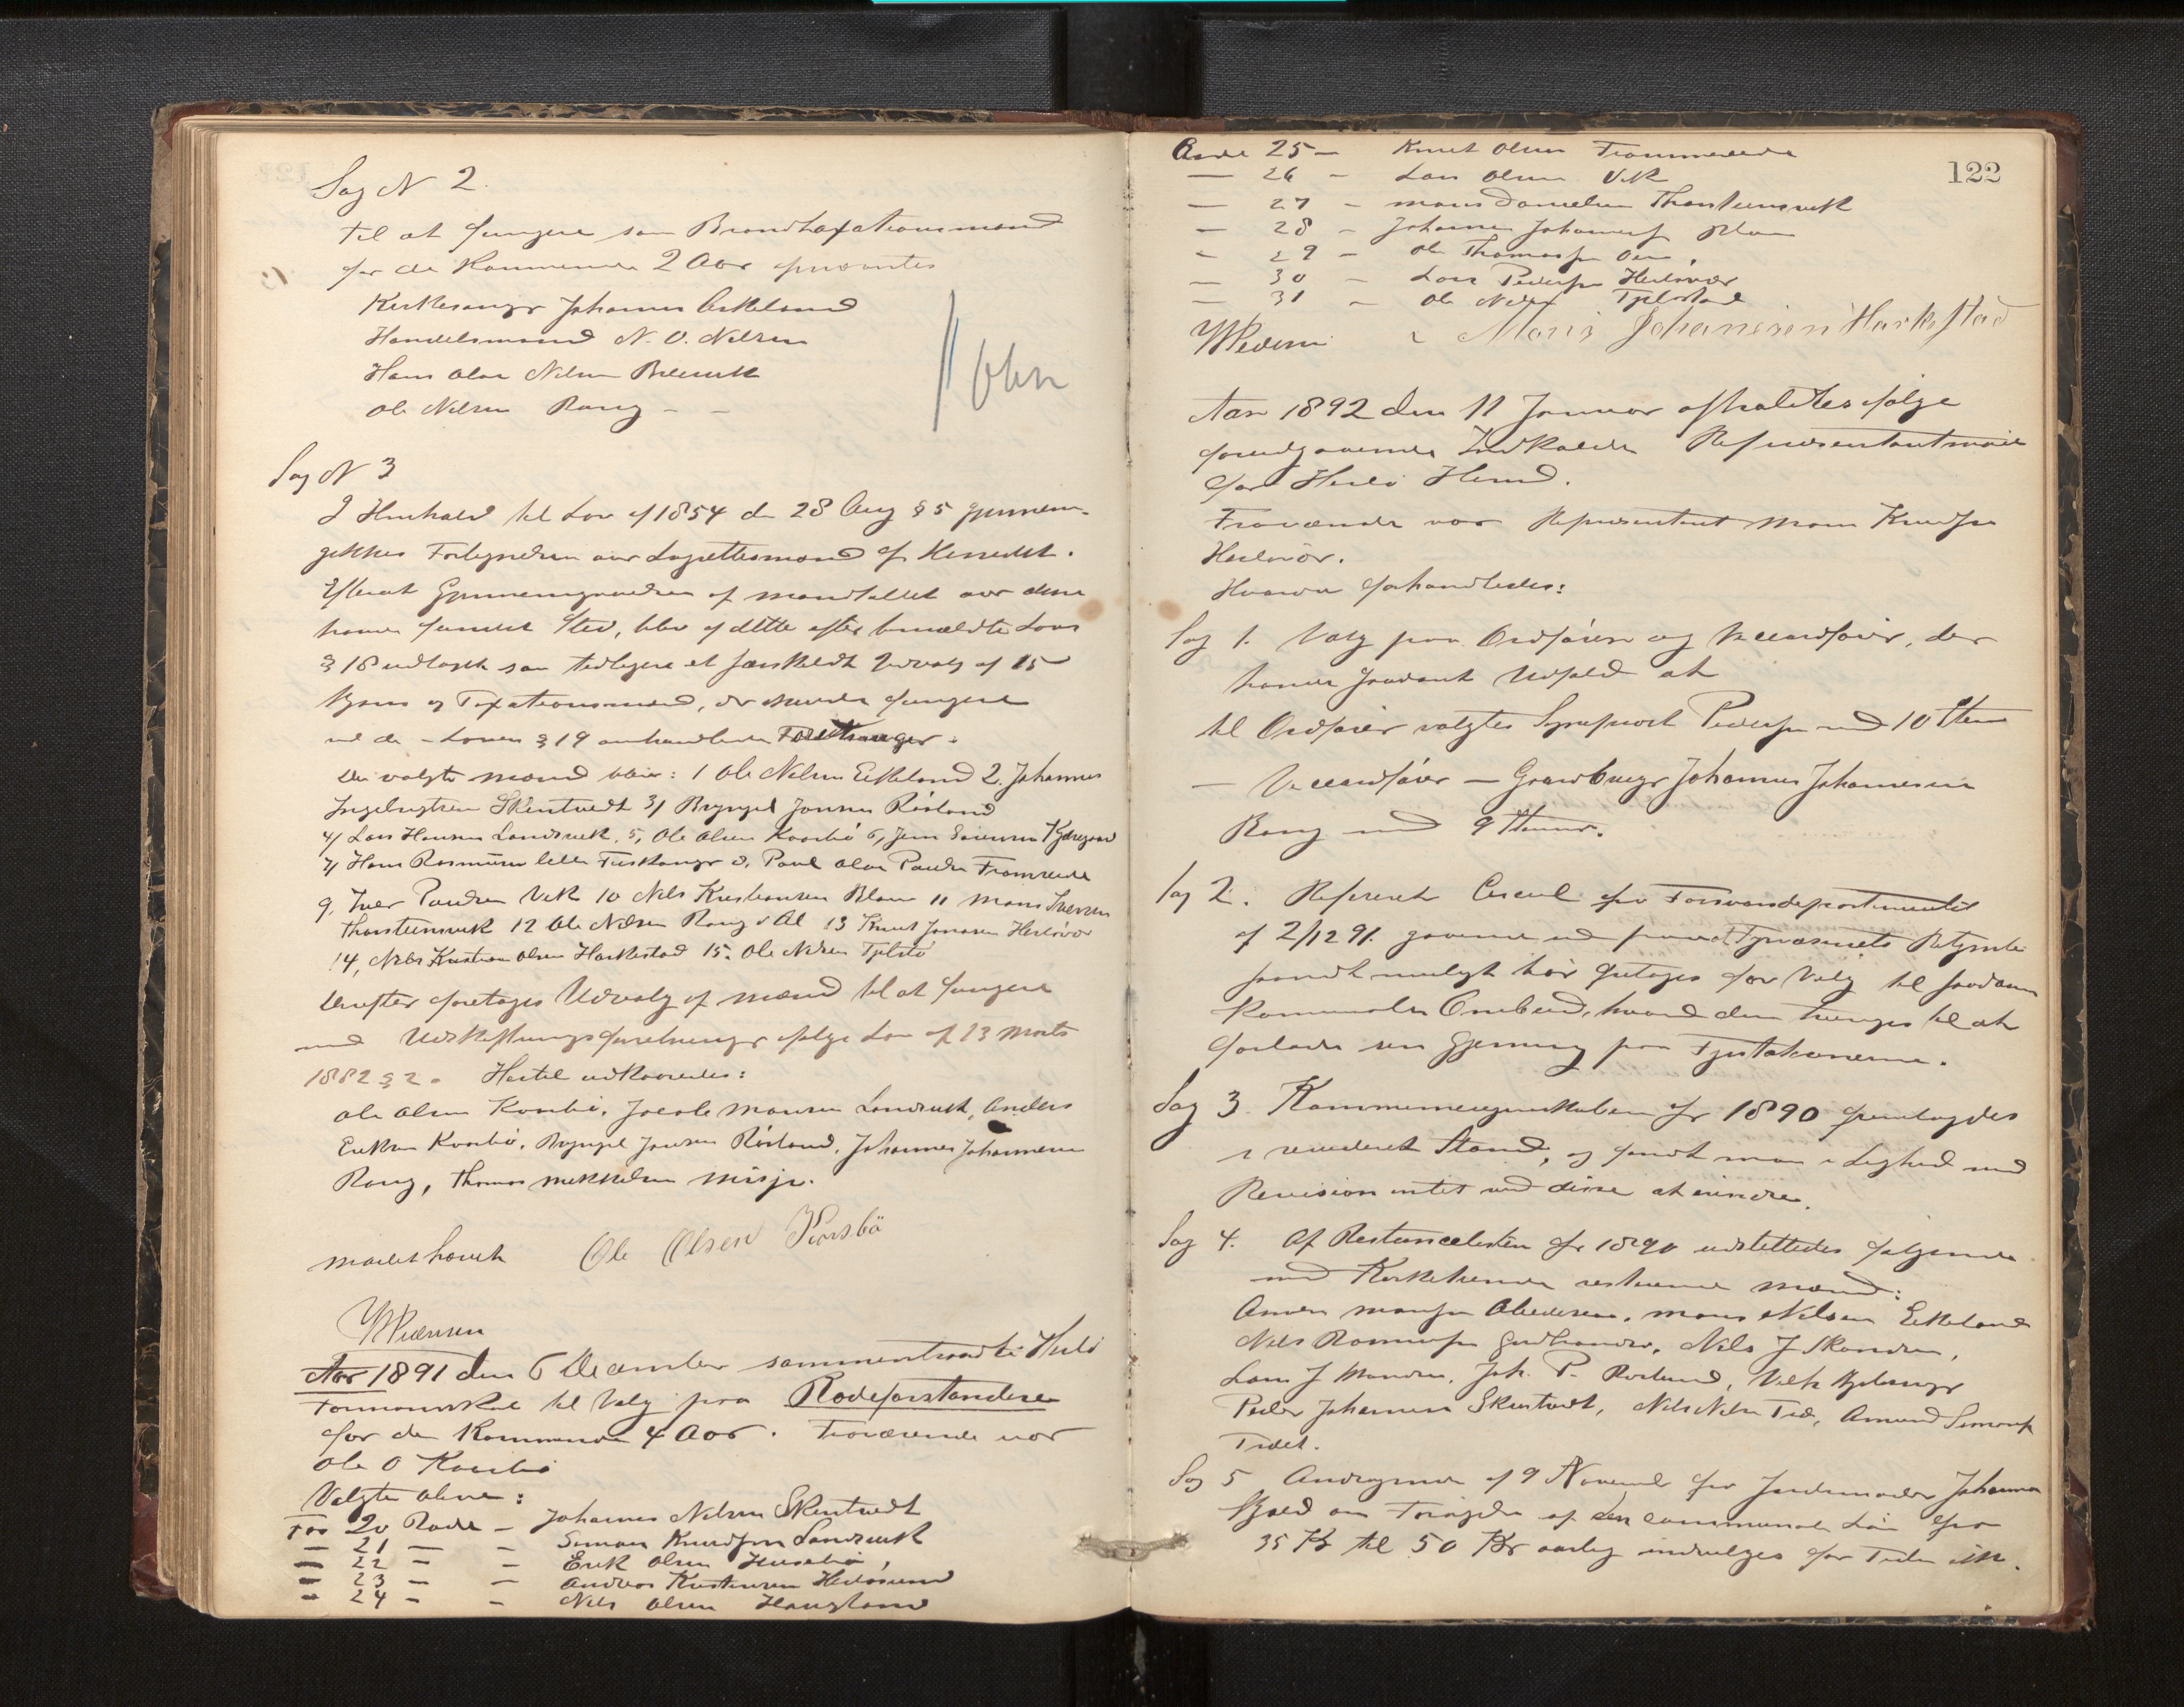 Sag N 2.
til at fungere som Brandtaxationsmænd
for de kommende 2 Aar opnævntes
Kirkesanger Johannes Askeland
Handelsmand N. O. Nilsen
Hans Olai Nilsen
Ole Nilsen Rong - -
Olsen
Sag N 3
I Henhold til Lov af 1854 d 28 Aug § 5 gjennem-
gikkes Fortegnelsen over Lagrettesmænd af Herredet.
Efterat Gjennemgaaelsen af mandtallet over disse
havde fundet Sted, blev af dette efter bemældte Lovs
§ 18 udtaget som tidligere et særskildt Udvalg af 15
Skjøns og Taxationsmænd, der skulde fungere
ved de i Loven § 19 omhandlede Forretninger.
De valgte mænd blev: 1 Ole Nilsen Eikeland 2. Johannes
Ingebrigtsen Skjentvedt 3/ Brynjel Jonsen Rösland
4/ Lars Hansen Landsvik 5, Ole Olsen Kvarsbö 6, Jens
7/ Hans Rasmusen lille Fuskanger 8, Paul Olai Paulsen Fromreide
9, Iver Paulsen Vik 10 Nils Kristiansen Blom 11 Mons Iversen
Thorsteinsvik 12 Ole Nilsen Rong 13 Knut Jonasen Herlövær
14, Nils Kristian Olsen Harkestad 15. Ole Nilsen Tjelstö
Derefter foretages Udvalg af mænd til at fungere
ved Udskiftningsforretninger ifølge Lov af 13 Marts
1882 § 2. Hertil udkaaredes:
Ole Olsen Kvarsbö, Jacob Monsen Landsvik, Anders
Eriksen Kvarsbö, Brynjel Jonsen Rösland, Johannes Johannesen
Rong, Thomas Mikkelsen Misje.
mödet hævet Ole Olsen Kvarsbö
Pedersen
Aar 1891 den 6 December sammentraadte Herlö
Formandskab til Valg paa Rodeforstandere
for de kommende 4 Aar. Fraværende var
Ole O Kvarsbö
Valgte bleve:
For 20 Rode - Johannes Nilsen Skjentvedt
- 21 - - Simon Knudsen Landsvik
- 22 - - Erik Olsen Husebö,
- 23 - - Andreas Kristensen Herlösund
- 24 - - Nils Olsen Haugland
122
Rode 25 - Knut Olsen Fromreide
- 26 - Lars Olsen Vik
- 27 - Mons Danielsen Thorsteinsvik
- 28 - Johannes Johannesen Blom
- 29 - Ole Thomassen Oen,
- 30 - Lars Pedersen Herlövær
- 31 - Ole Nilsen Tjelstad
Pedersen Mons Johannesen Harkestad
Aar 1892 den 11 Januar afholdtes ifølge
foregaaende Indkaldelse Repræsentantmöde
for Herlö Herred.
Fraværende var Repræsentant Mons Knudsen
Herlövær.
Hvorved forhandledes:
Sag 1. Valg paa Ordförer og Viceordförer, der
havde saadant Udfald at
til Ordförer valgtes Sogneprest Pedersen med 10 Stem
- Viceordförer - Gaardbruger Johannes Johannesen
Rong med 9 Stemmer.
Sag 2. Refereret Circul fra Forsvarsdepartementet
af 2/12 91. gaaende ud paa at Fyrvæsenets Betjente
saavidt muligt bör fritages for Valg til saadanne
Kommunale Ombud, hvorved den tvinges til at
forlade sin Gjerning paa Fyrstationerne.
Sag 3. Kommuneregnskaben for 1890 fremlagdes
i revideret Stand, og fandt man i Lighed med
Revision intet ved disse at erindre.
Sag 4. Af Restancelisten for 1890 udslettedes følgende
med resterende mænd:
Anders Monsen Mons Nilsen Eikeland
Nils Rasmusen Nils J Skaarden,
Lars J Joh. P. Rösland,
Peder Johannesen Skjentvedt, Nils Nilsen Amund Simonsen
Sag 5 Andragende af 9 Novemb fra Jordemoder Johanna
Skjold om Forøgelse af den communale Lön fra
35 Kr til 50 Kr aarlig indvilges for Tiden ikke.